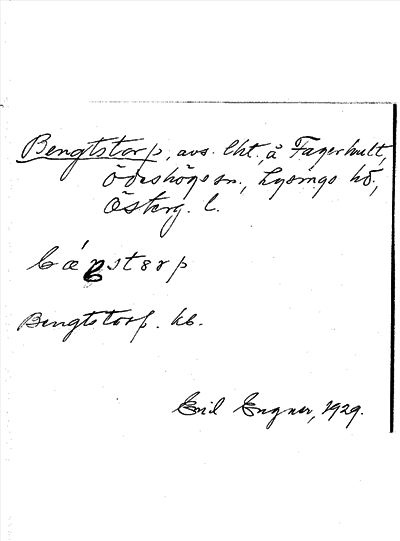 Bengtstorp, avs. lht., å Fagerhult,
Ödeshögs sn., Lysings hd.,
Österg. l.
bǽŋstərp
Bengtstorp. kb.
Emil Engner, 1929.